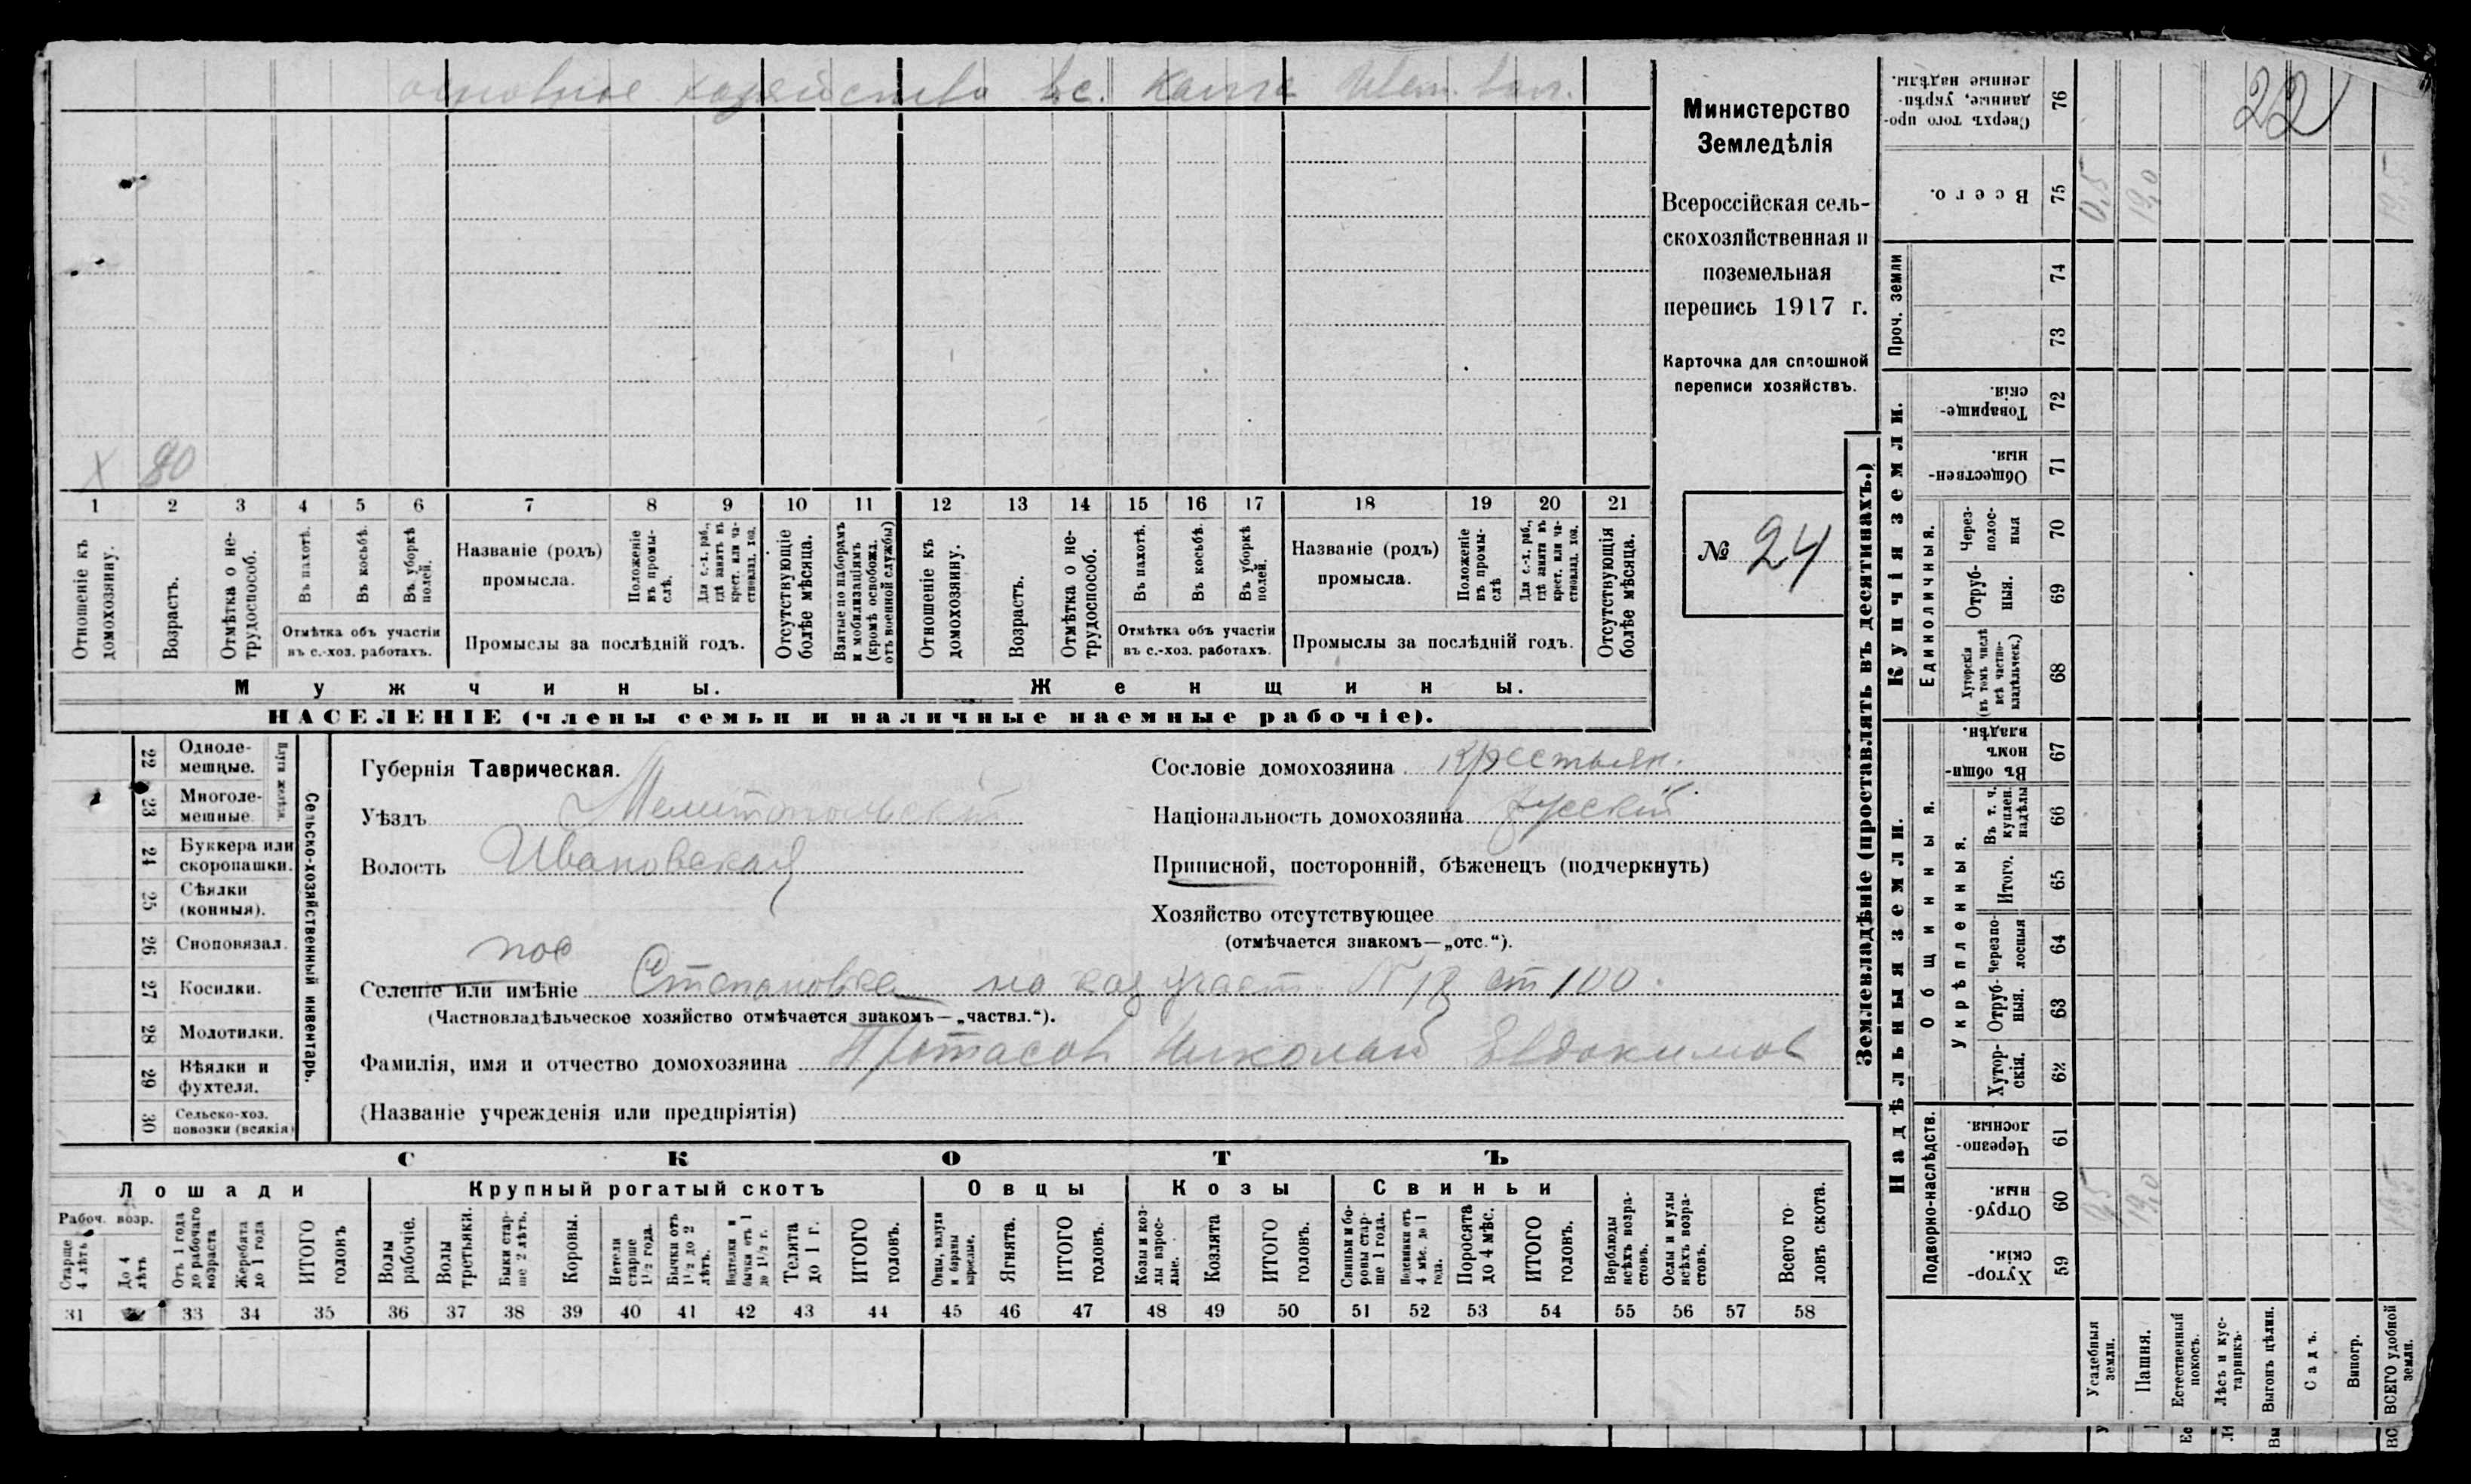 основное хозяйство в с.
Министерство
Земледѣлія
Всероссійская сель-
скохозяйственная и
поземельная
перепись 1917 г.
Карточка для сплошной
переписи хозяйствъ.
№ 24
22
X 80
1 2 3 4 5 6 7 8 9 10 11 12 13 14 15 16 17 18 19 20 21
Отношеніе къ домохозяину.
Возрастъ.
Отмѣтка о не-трудоспособ.
Въ пахотѣ.
Въ косьбѣ.
Въ уборкѣ полей.
Отмѣтка объ участіи
въ с.-хоз. работахъ.
Названіе (родъ)
промысла.
Положеніе въ промы-слѣ.
Для с.-х. раб., гдѣ занятъ въ крест. или ча-стновлад. хоз.
Промыслы за послѣдній годъ.
Отсутствующіе болѣе мѣсяца.
Взятые по наборамъ и мобилизаціямъ (кромѣ освобожд. отъ военной службы)
Отношеніе къ домохозяину.
Возрастъ.
Отмѣтка о не-трудоспособ.
Въ пахотѣ.
Въ косьбѣ.
Въ уборкѣ полей.
Отмѣтка объ участіи
въ с.-хоз. работахъ.
Названіе (родъ)
промысла.
Положеніе въ промы-слѣ
Для с.-х. раб., гдѣ занята въ крест. или ча-стновлад. хоз.
Промыслы за послѣдній годъ.
Отсутствующія болѣе мѣсяца.
Мужчины.
Женщины.
НАСЕЛЕНІЕ (члены семьи и наличные наемные рабочіе).
22 Одноле-мешные.
23 Многоле-мешные.
24 Буккера или скоропашки.
25 Сѣялки (конныя).
26 Сноповязал.
27 Косилки.
28 Молотилки.
29 Вѣялки и фухтеля.
30 Сельско-хоз. повозки (всякія)
Сельско-хозяйственный инвентарь.
Губернія Таврическая.
Уѣздъ Мелитопольскій
Волость Ивановская
Сословіе домохозяина крестьян.
Національность домохозяина русскій
Приписной, посторонній, бѣженецъ (подчеркнуть)
Хозяйство отсутствующее
(отмѣчается знакомъ—„отс.“).
пос
Селеніе или имѣніе Степановка на каз участ. N 18 ст 100.
(Частновладѣльческое хозяйство отмѣчается знакомъ—„частвл.“).
Фамилія, имя и отчество домохозяина Протасов Николай Евдокимов
(Названіе учрежденія или предпріятія)
СКОТЪ
Лошади
Крупный рогатый скотъ
Овцы
Козы
Свиньи
Рабоч. возр.
Старше 4 лѣтъ
До 4 лѣтъ
Отъ 1 года до рабочаго возраста
Жеребята до 1 года
ИТОГО головъ
Волы рабочіе.
Волы третьяки.
Быки стар-ше 2 лѣтъ.
Коровы.
Нетели старше 1½ года.
Бычки отъ 1½ до 2 лѣтъ.
Подтелки и бычки отъ 1 до 1½ г.
Телята до 1 г.
ИТОГО головъ.
Овцы, валухи и бараны взрослые.
Ягнята.
ИТОГО головъ.
Козы и коз-лы взрос-лые.
Козлята
ИТОГО головъ.
Свиньи и бо-ровы стар-ше 1 года.
Подсвинки отъ 4 мѣс. до 1 года.
Поросята до 4 мѣс.
ИТОГО головъ.
Верблюды всѣхъ возра-стовъ.
Ослы и мулы всѣхъ возра-стовъ.
Всего го-ловъ скота.
31 33 34 35 36 37 38 39 40 41 42 43 44 45 46 47 48 49 50 51 52 53 54 55 56 57 58
Землевладѣніе (проставлять въ десятинахъ.)
Купчія земли.
Надѣльныя земли.
Проч. земли
Единоличныя.
Общинныя.
Укрѣпленныя.
Подворно-наслѣдств.
Сверхъ того про-данные, укрѣп-ленные надѣлы. 76
Всего. 75 0,5 19,0 19,5
74
73
Товарище-скія. 72
Обществен-ныя. 71
Через-полос-ныя 70
Отруб-ныя. 69
Хуторскія (въ томъ числѣ всѣ частно-владѣльческ.) 68
Въ общи-номъ владѣн. 67
Въ т. ч. куплен. надѣлы 66
Итого. 65
Черезпо-лосныя 64
Отруб-ныя. 63
Хутор-скія. 62
Черезпо-лосныя. 61
Отруб-ныя. 60 0,5 19,0 19,5
Хутор-скія. 59
Усадебныя земли.
Пашня.
Естественный покосъ.
Лѣсъ и кус-тарникъ.
Выгонъ цѣлин.
Садъ.
Виногр.
ВСЕГО удобной земли.